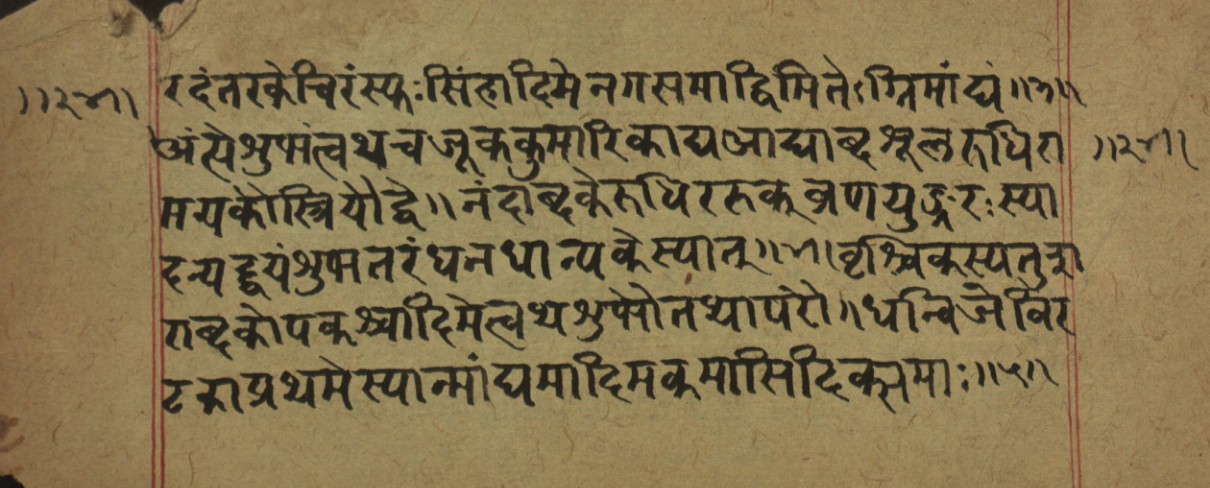 रदंतरकेचिरंस्फुःसिंहादिमेनगसमाद्विमितेग्निमांद्यं॥३॥
॥२४॥
अंत्येशुभंत्वथचजूककुमारिकाद्यआद्याब्दशूलरुधिरा
॥२४॥
मयकोस्त्रियौद्वे॥नंदाब्दकेरुधिररुक्व्रणयुङ्नरःस्या
दन्यद्द्वयंशुभतरंधनधान्यकेस्यात्॥४॥वृश्चिकस्यतु
राब्दकोपकश्चादिमेत्वथशुभोतथापरो॥धन्विजेविर
टकाप्रथमेस्यान्मांद्यमादिमकमासिदिक्समाः॥५॥